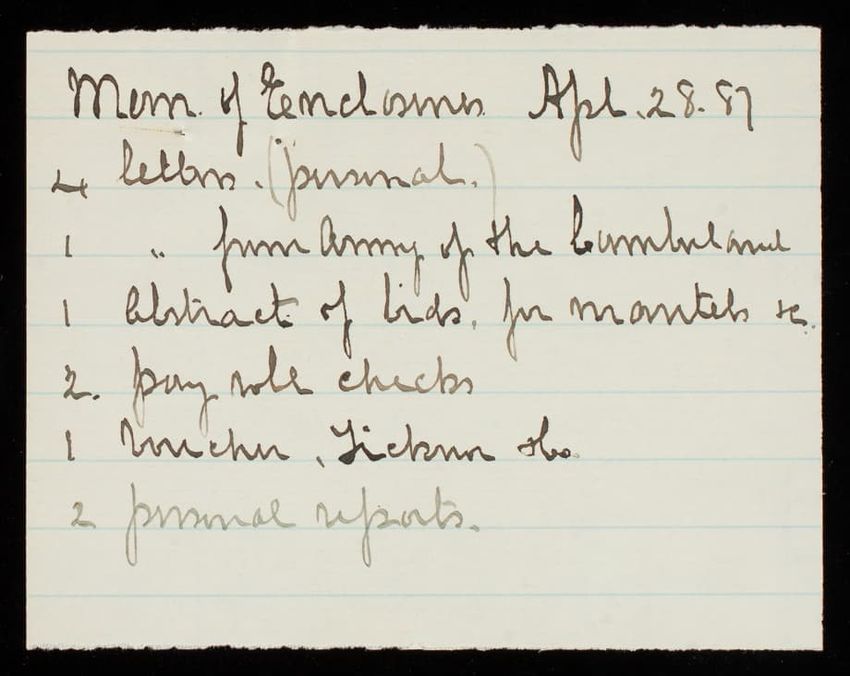 Mem. of Enclosures Apl. 28. 87
4 letters. (personal.)
1 " from Army of the Cumberland
1 abstract of bids, for mantels &c.
2. pay roll checks
1 Voucher, Ticknor & Co
2 personal reports.